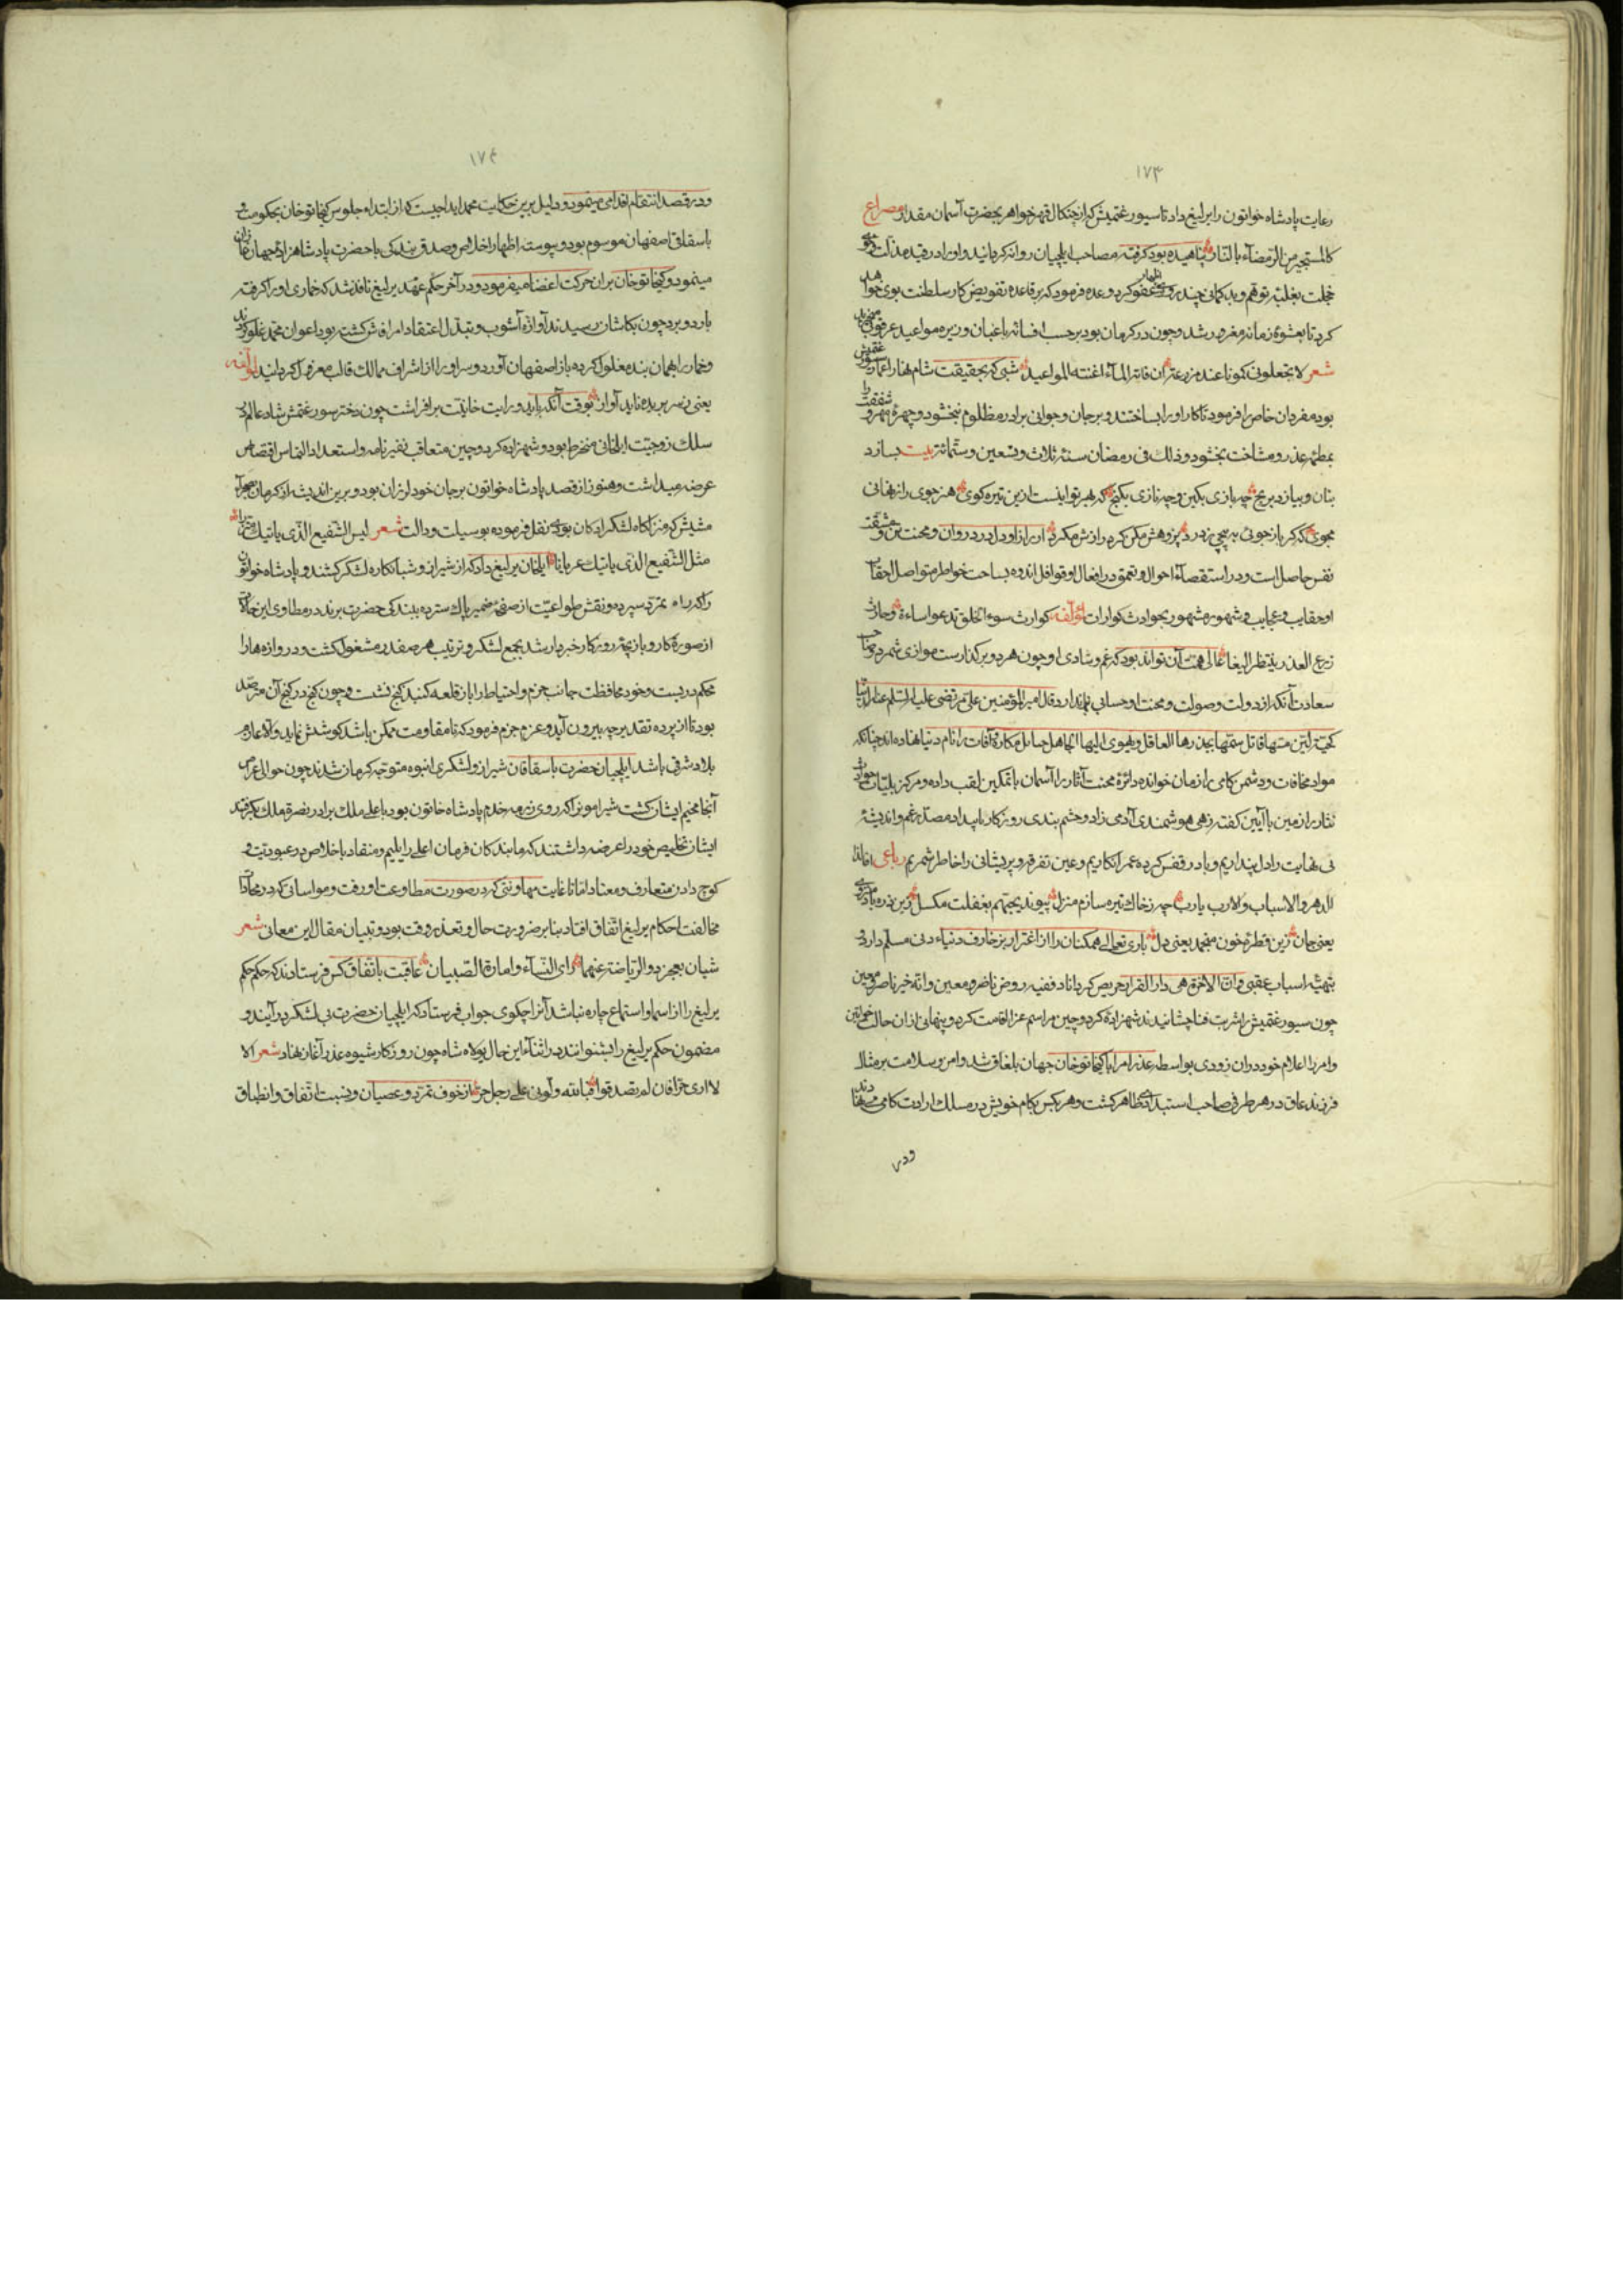 ۱۷۳
رعایت پادشاه خواتون را یرلیغ داد تا سیورغتمیش که از چنکال قهر خواهر بحضرت آسمان مقدار مصراع
کالمستجیر من الرمضآء بالنار پناهیده بود کرفته مصاحب ایلچیان روانه کردانید و او را در قید مذلت و
خجلت بغلبه توهم و بد کمانی چند روز عفو کرد و وعده فرمود که بر قاعده تفویض کار سلطنت بوی خواهد
کرد تا بعشوه زمانه مغرور شد و چون در کرمان بود بر حسب افسانه باغبان و زیره مواعید عرقوبی
شعر لا تجعلونی کمونا عند مزرعة ان فاته المآء اغنته المواعید شبی که بحقیقت شام فنا را
بود مفردان خاص را فرمود تا کار او را بساختند و بر جان و جوانی برادر مظلوم نبخشود و چهره مهر و شفقت را
و ذلک فی رمضان سنه ثلاث و تسعین و ستمائه بیت بسازد
بنان و بیازد برنج چه بازی بکین و چه نازی بکنج که بهر تو اینست ازین تیره کوی هنر جوی راز نهانی
مجوی که کر باز جوئی به پیچی ز درد پژوهش مکن کرد رازش مکرد از راز او دل در دروان و محنت تن و مشقت
نفس حاصل است و در استقصآء احوال و تعمق در افعال او قوافل اندوه بساحت خواطر متواصل
او حقایب و عجایب و شهور مشهور بحوادث کوارات لمؤلفه کوارث سوء الخلق تدعو اساءة
عالی همت آن تواند بود که غم و شادی او چون هر دو بر کذارست موازی شمرد و
سعادت آنکه از دولت وصولت و محنت او حسابی نماند قال امیر المؤمنین علی مرتضی علیه السلم
کحیة لین مسها قاتل سمها یحذرها العاقل ویهوی الیها الجاهل مکاره و آفات را نام دنیا نهاده اند چنانکه
مواد مخافات و دشمن کامی را زمان خوانده دائره محنت آثار را آسمان با تمکین لقب داده و مرکز بلیات
نثار را زمین با آیین کفته زهی هوشمندی آدمی زاد و چشم بندی روزکار
بی نهایت را دل پنداریم و باد در قفس کرده عمر انکاریم و عین تفرقه و پریشانی را خاطر شمریم رباعی
یا رب چه ز خاک تیره سازم منزل پیوند بجهم بغفلت مکسل زین ذره باد
یعنی جان زین قطره خون منجمد یعنی دل باری تعالی همکنان را از اغترار بزخارف دنیاء دنی مسلم داراد
بتهیه اسباب عقبی وان الاخرة هی دار القرار حریص کرداناد وفیه روض ناضر و معین وانه خیر ناصر ومعین
چون سیورغتمیش را شربت فنا چشانیدند شهزاده کردوچین مراسم عزا اقامت کرد و پنهانی از ان حالت خواتین
و امرا را اعلام خود در ان زودی بواسطه غدر امرا با کیخاتو خان جهان بلغاق شد و امن و سلامت بر مثال
فرزند عاق در هر طرفی صاحب استبدادی ظاهر کشت و هر کس بکام خویش در مسلک ارادت کامی می نهادند
ودر
۱۷۴
و در قصد انتقام اقدامی مینمود و دلیل برین حکایت محمد ایداجیست که از ابتداء جلوس کیخاتو خان بحکومت و
باسقاقی اصفهان موسوم بود و پیوسته اظهار اخلاص و صدق بندکی با حضرت پادشاهزاده جهان غازان
مینمود و کیخاتو خان بران حرکت اغضا میفرمود و در آخر حکم عهد یرلیغ نافذ شد که خماری او را کرفته
باردو برد چون بکاشان رسیدند آوازه آشوب و تبدل اعتقاد امرا فاش کشته بود اعوان محمد غلو کردند
و خمار را بهمان بند مغلول کرده باز اصفهان آوردند و سر او را از اشراف ممالک قالب معزول کردانید لمؤلفه
یعنی ز سر بریده ناید آواز بوقت آنکه بایدو رایت خانیت برافراشت چون دختر سورغتمش شاه عالم در
سلک زوجیت ایلخانی منخرط بود و شهزاده کردوچین متعاقب نفیر نامه و استعداد التماس اقتصاص
عرضه میداشت و هنوز از قصد پادشاه خواتون بر جان خود لرزان بود و برین اندیشه از کرمان
که منزلکاه لشکر اوکان بود نقل فرموده بوسیلت و دالت شعر لیس الشفیع الذی یاتیک متزرا
مثل الشفیع الذی یاتیک عریانا ایلخان یرلیغ داد که از شیراز و شبانکاره لشکر کشند و پادشاه خواتون
را که راه تمرد سپرده و نقش طواعیت از صفحه ضمیر پاک سترده ببندکی حضرت برند در مطاوی این حالات
از صورة کار و بازیچه روزکار خبردار شد بجمع لشکر و ترتیب هر صفدر مشغول کشت و دروازه ها را
محکم در بست و خود محافظت جانب حزم و احتیاط را بار قلعه کنبد کنج نشست و چون کنج در کنج آن مترصد
بود تا از پرده تقدیر چه بیرون آید و عزم جزم فرمود که تا مقاومت ممکن باشد کوشش نماید والا عازم
بلاد شرقی باشد ایلچیان حضرت باسقاقان شیراز و لشکری انبوه متوجه کرمان شدند چون حوالی
آنجا مخیم ایشان کشت شیرامون را که روی زمره خدم پادشاه خاتون بود با علی ملک برادر نصرة ملک بکرفتند
ایشان تخلیص خود را عرضه داشتند که ما بندکان فرمان اعلی را ایلیم و منقاد باخلاص در عبودیت و
کوچ دادن متعارف و معتاد اما تا غایت تهاونی که در صورت مطاوعت او رفت و مواساتی که در محاذاة
مخالفت احکام یرلیغ اتفاق افتاد بنابر ضرورت حال و تعذر وقت بود و تبیان مقال این معانی شعر
شیان یعجز ذو الریاضة عنهما رای النساء وامارة الصبیان عاقبت باتفاق کس فرستادند که حکم حکم
یرلیغ را از اسما و استماع چاره نباشد آنرا چکوی جواب فرستاد که ایلچیان حضرت بی لشکر درآیند و
مضمون حکم یرلیغ را بشنوانند در اثناء این حال پولاد شاه چون روزکار شیوه غدر آغاز نهاد شعر الا
از خوف تمرد و عصیان و نسبت اتفاق و انطباق